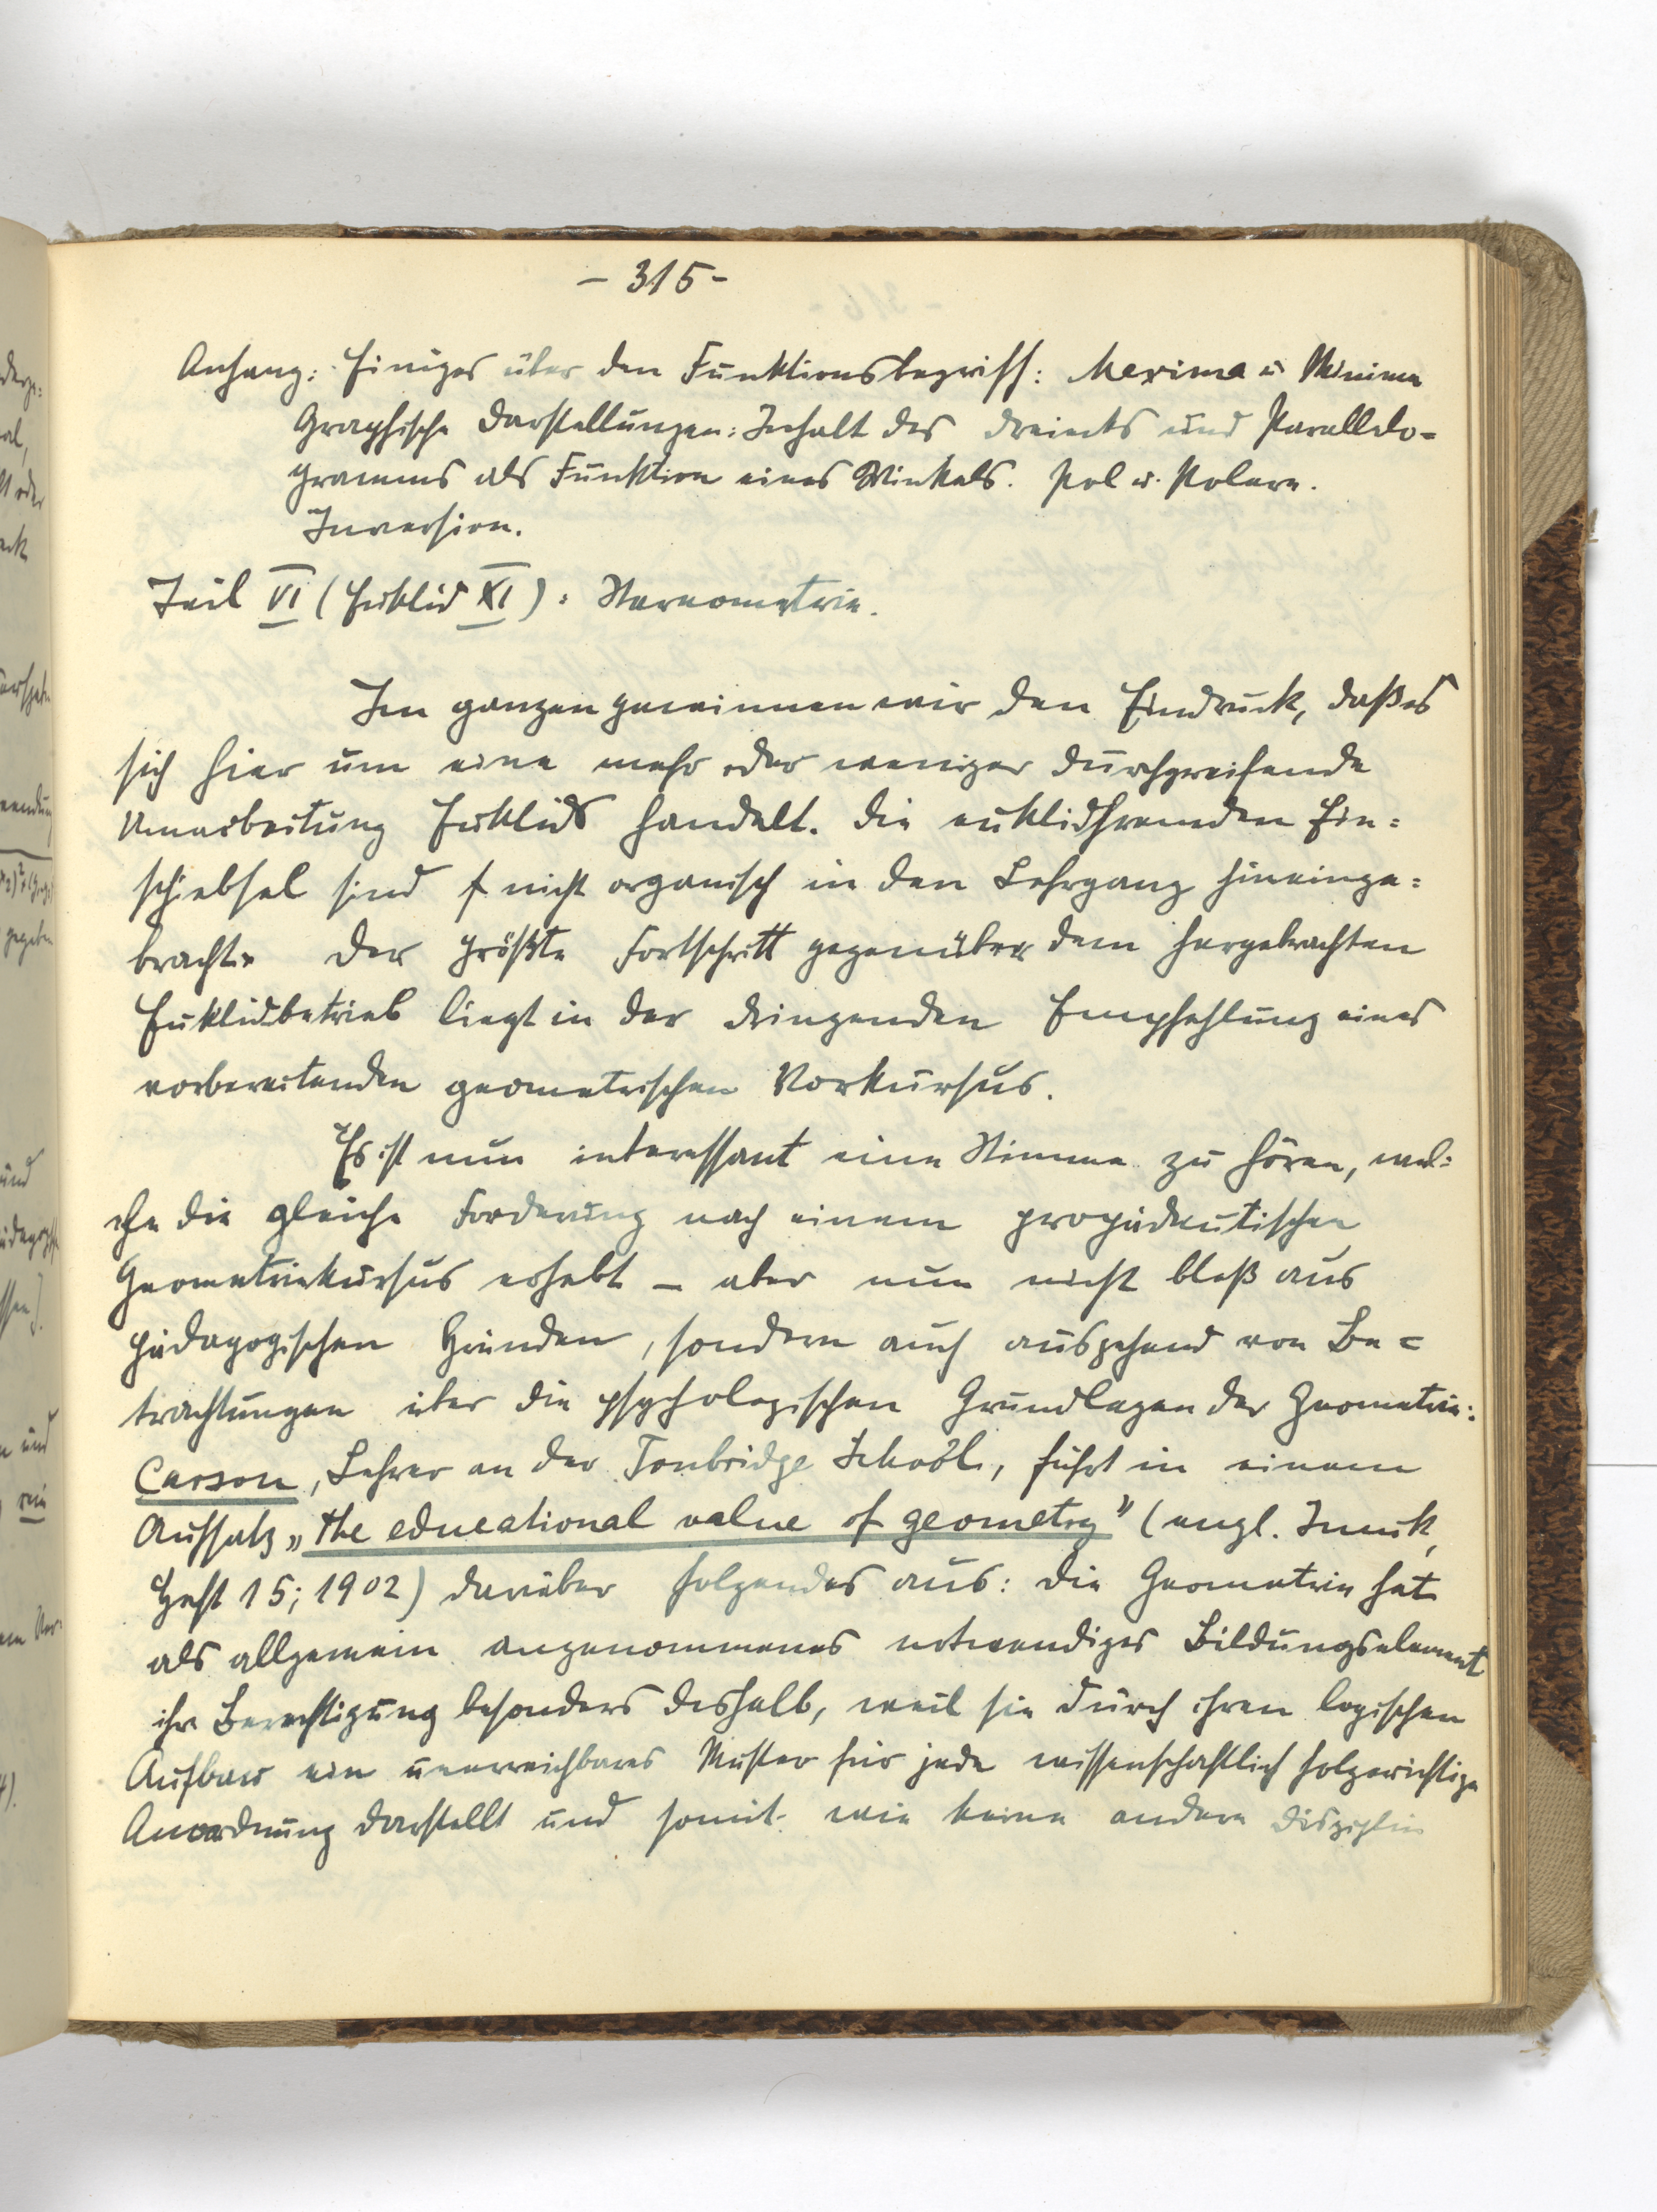 - 315 -
Anhang: Einiges über den Funktionsbegriff: Maxima u Minima
Graphische Darstellungen: Inhalt des Dreiecks und Parallelo=
gramms als Funktion eines Winkels. Pol u. Polare.
Inversion.
Teil VI (Euklid XI): Stereometrie.
Im ganzen gewinnen wir den Eindruck, daß es
sich hier um eine mehr oder weniger durchgreifende
Umarbeitung Euklids handelt. Die euklidfremden Ein=
schiebsel sind nicht organisch in den Lehrgang hineinge=
bracht. Der größte Fortschritt gegenüber dem hergebrachten
Euklidbetrieb liegt in der dringenden Empfehlung eines
vorbereitenden geometrischen Vorkursus.
Es ist nun interessant eine Stimme zu hören, wel=
che die gleiche Forderung nach einem propädeutischen
Geometriekursus erhebt – aber nun nicht bloß aus
pädagogischen Gründen, sondern auch ausgehend von Be=
trachtungen über die psychologischen Grundlagen der Geometrie:
Carson, Lehrer an der Tonbridge School, führt in einem
Aufsatz „the educational value of geometry" (engl. Imuk,
Heft 15; 1902) darüber folgendes aus: Die Geometrie hat
als allgemein angenommenes notwendiges Bildungselement
ihre Berechtigung besonders deshalb, weil sie durch ihren logischen
Aufbau ein unerreichbares Muster für jede wissenschaftlich folgerichtige
Anordnung darstellt und somit wie keine andere Disziplin